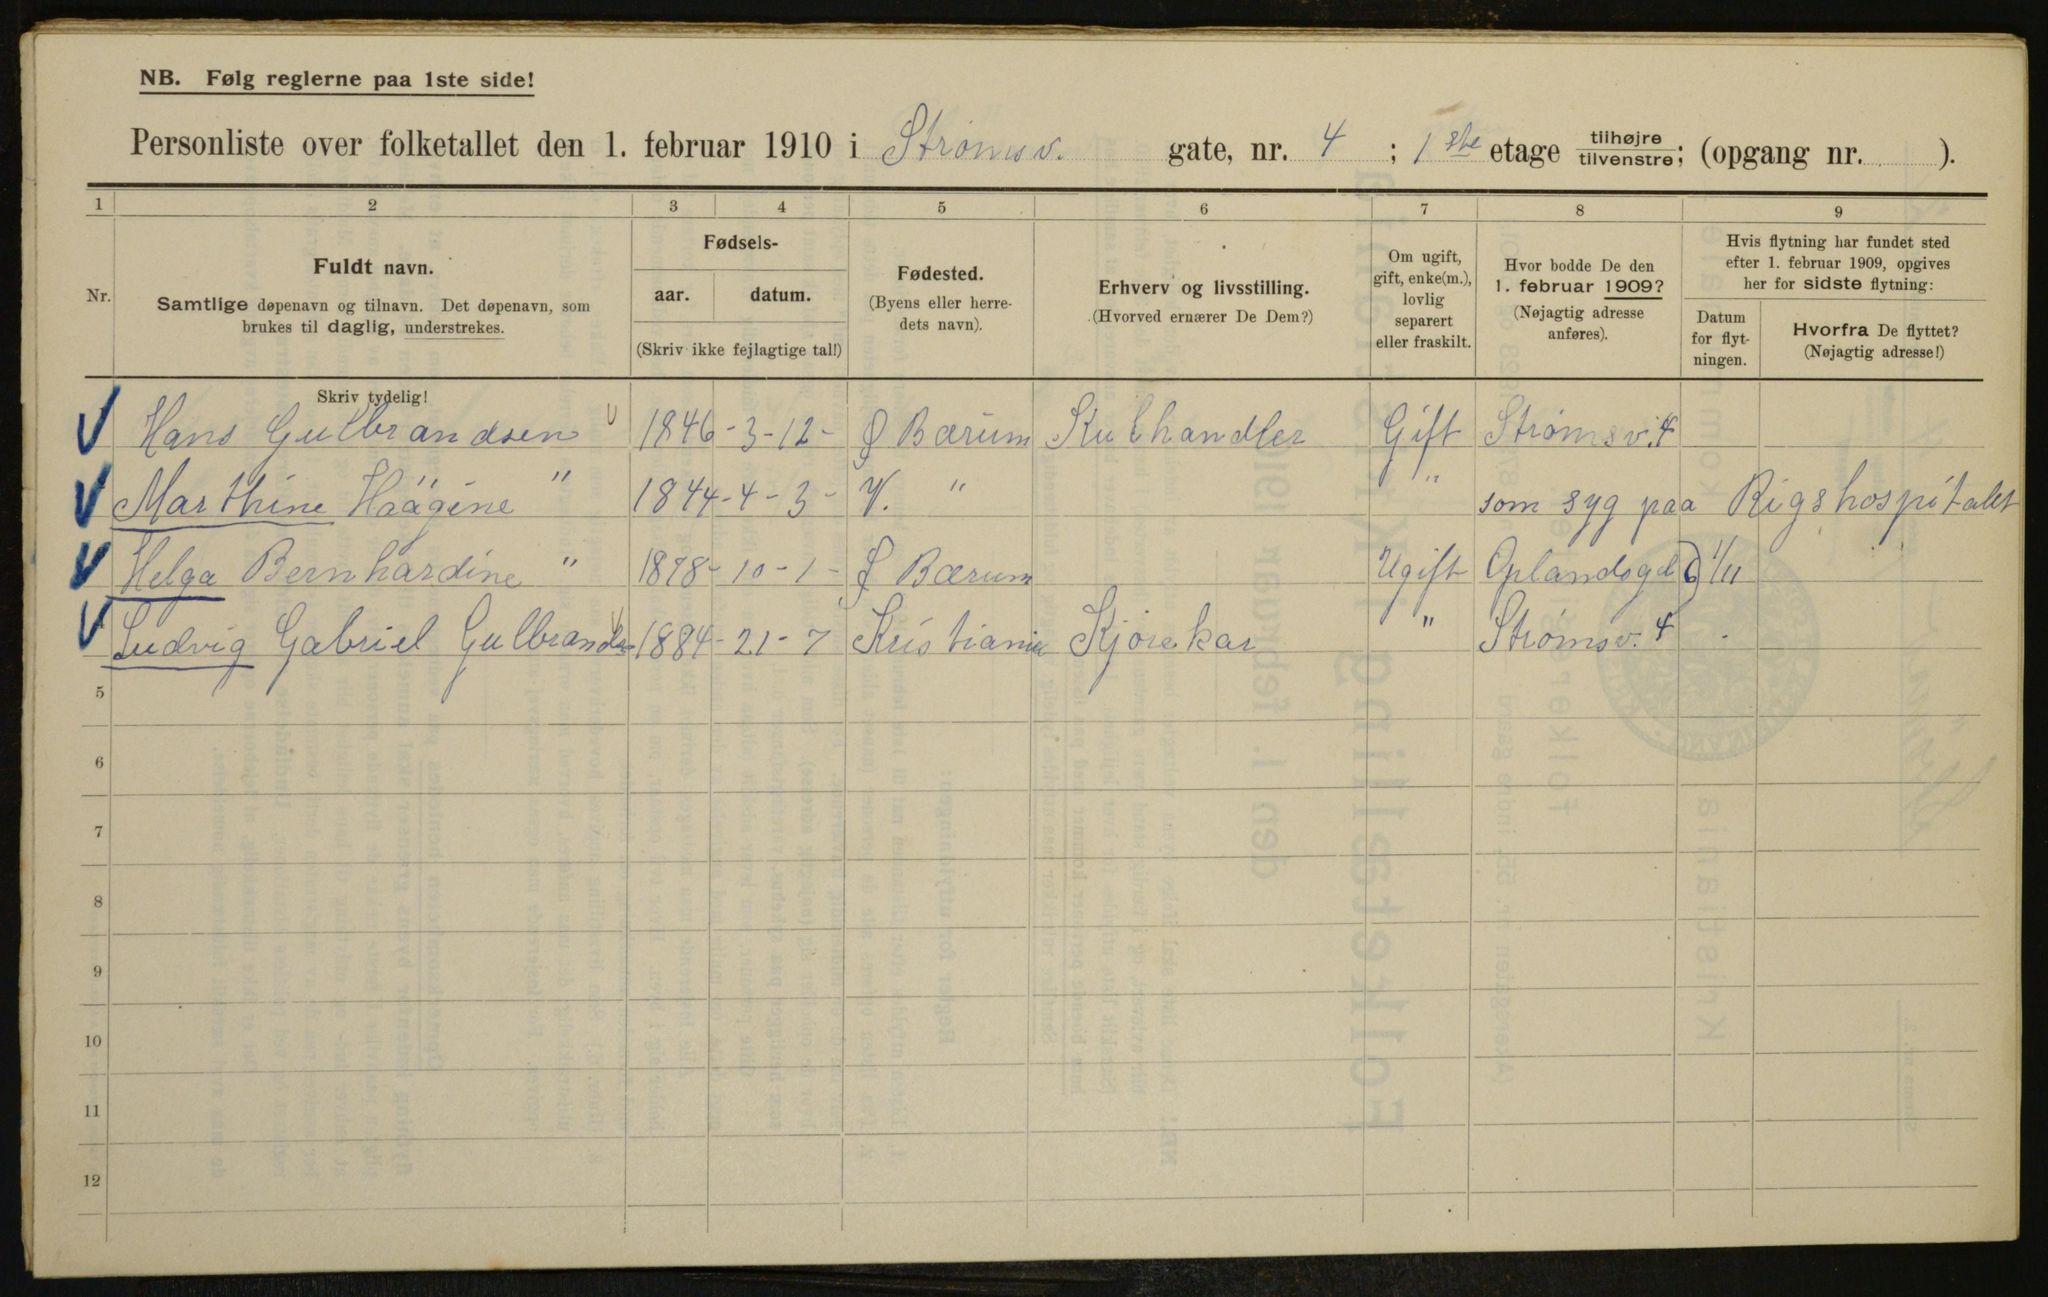 NB. Følg reglerne paa 1ste side!
Personliste over folketallet den 1. februar 1910 i Strømsv. gate, nr. 4 ; 1ste etage tilhøjre tilvenstre; (opgang nr. ).
1 2 3 4 5 6 7 8 9
Nr.
Fuldt navn.
Samtlige døpenavn og tilnavn. Det døpenavn, som
brukes til daglig, understrekes.
Fødsels-
aar. datum.
(Skriv ikke fejlagtige tal!)
Fødested.
(Byens eller herre-
dets navn).
Erhverv og livsstilling.
(Hvorved ernærer De Dem?)
Om ugift,
gift, enke(m.),
lovlig
separert
eller fraskilt.
Hvor bodde De den
1. februar 1909?
(Nøjagtig adresse
anføres).
Hvis flytning har fundet sted
efter 1. februar 1909, opgives
her for sidste flytning:
Datum
for flyt-
ningen.
Hvorfra De flyttet?
(Nøjagtig adresse!)
Skriv tydelig!
Hans Gulbrandsen 1846 - 3 - 12 - Ø Bærum Kulhandler Gift Strømsv. 4
Marthine Haagine " 1844 - 4 - 3 - V. " " som syg paa Rigshospitalet
Helga Bernhardine " 1878 - 10 - 1 - Ø Bærum Ugift Oplandsgd 6 1/11
Ludvig Gabriel Gulbrands 1884 - 21 - 7 Kristiania Kjørekar " Strømsv. 4
5
6
7
8
9
10
11
12